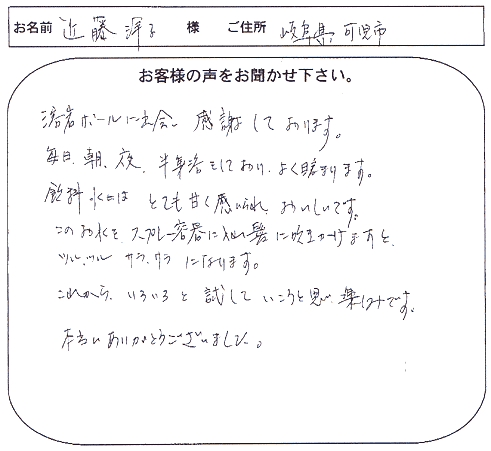 お名前 近藤 洋子 様 ご住所 岐阜県 可児市
お客様の声をお聞かせ下さい。
溶岩ボールに出会い 感謝しております。
毎日、朝、夜、半身浴をしており、よく暖まります。
飲料水には とても甘く感じられ、おいしいです。
このお水を スプレー容器に入れ髪に吹きかけますと、
ツル、ツル サラ、サラ になります。
これから、いろいろと 試して いこうと思い 楽しみです。
本当にありがとうございました。